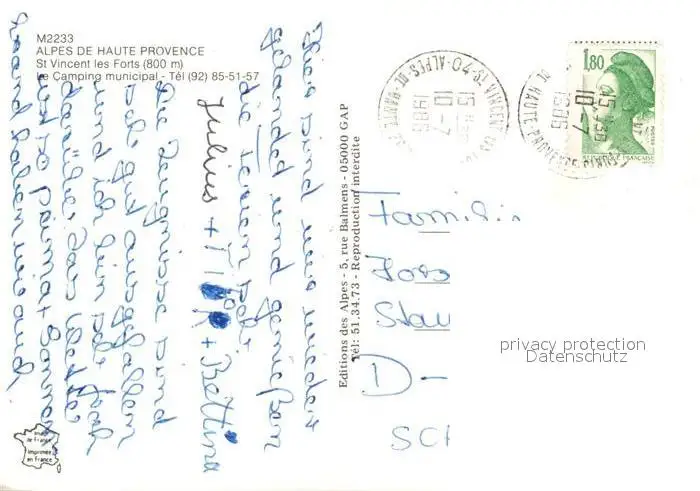 M2233
ALPES DE HAUTE PROVENCE
St Vincent les Forts (800 m)
Le Camping municipal - Tél (92) 85-51-57
Hier sind wir wieder
gelandet und genießen
die Ferien sehr.
Julius + TIM + Bettina
Die Zeugnisse sind
sehr gut ausgefallen
und ich bin sehr froh
darüber. Das Wetter
ist so prima, Sonne
Strand haben wir auch.
Editions des Alpes - 5, rue Balmens - 05000 GAP
Tél: 51.34.73 - Reproduction interdite
Image
de France
Imprimée
en France
1,80
REPUBLIQUE FRANÇAISE
POSTES
ST VINCENT LES FORTS
04-ALPES-DE-HAUTE-PROVENCE
15 H
10-7
1986
15 H
10-7
1986
DE HAUTE-PROVENCE
Familie
D-
SCH
privacy protection
Datenschutz